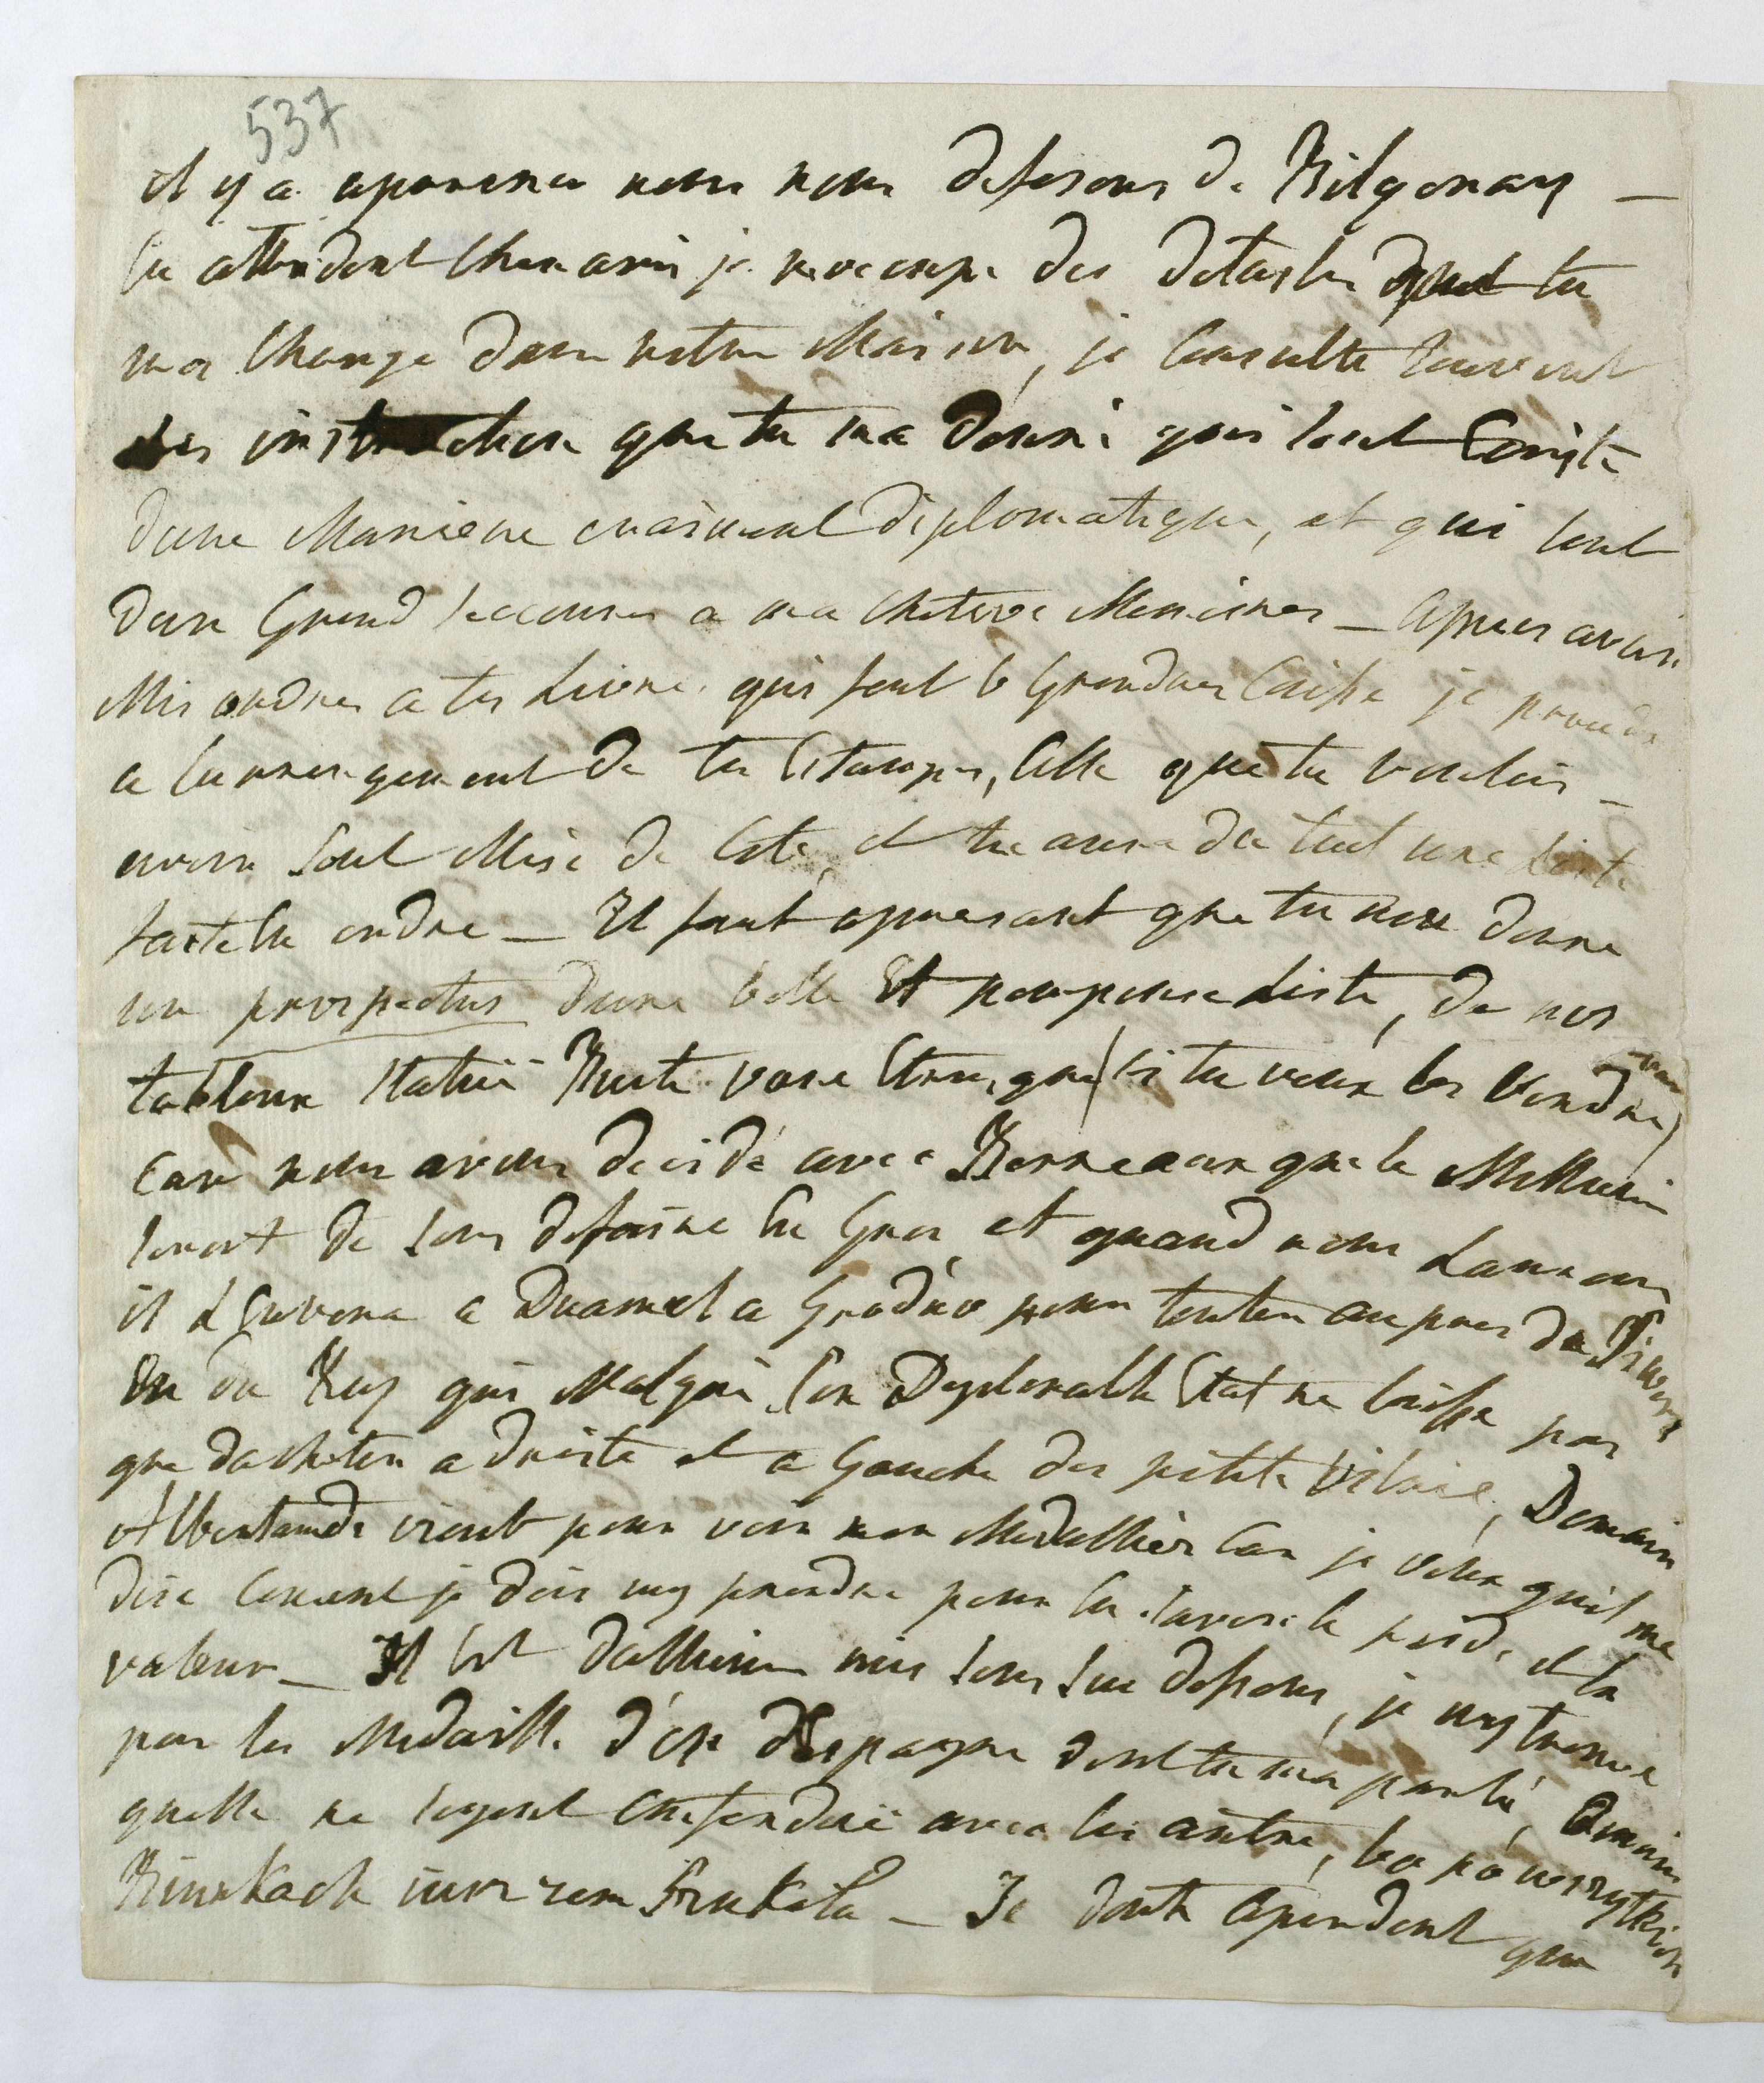 537
il y a aparence nous nous deferons de Bilgoray —
En attendent Cher ami je mocoupe des detaile dont tu
ma Charge dans notre Maison, je Consulte souvent
les instruction que tu ma donné qui sont Ecrite
dune Maniere vraiment diplomatique, et qui sont
dun Grand seccours a ma Chetive Memoires — Apres avoir
Mis ordres a tes Livre qui sont 6 Grandes Caisse je procede
a larrengement de tes Estampes, Celle que tu voulois —
avoir sont Mise de Coté, et tu aura du tout une Liste
faite En ordre — Il faut apresent que tu nous donne
un prospectus dune belle Et pompeuse Liste, de nos
tableaux Statuë Buste vase Etrusque (si tu veux les Vendre)
Car nous avons decidé avec que le Meilleur
seroit de sen defaire En Gros, et quand nous Laurons
il Ecrivera a a Grodno pour tenter aupres du
ou du Roy qui Malgré son Deplorable Etat ne laisse pas
que dacheter a droite et a Gauche des petite , Demain
Albertrandi vient pour voir mon Medallier Car je veux quil me
dise Coment je dois my prendre pour En savoir le poids et la
valeur — Il Est dallieurs mis sens sus dessous, je ny trouve
pas les Medaille d'or d'Espagne dont tu ma parlé,
quelle ne soyent Confonduë avec les autre, bo po wszystkich
— Je doute Cependent que